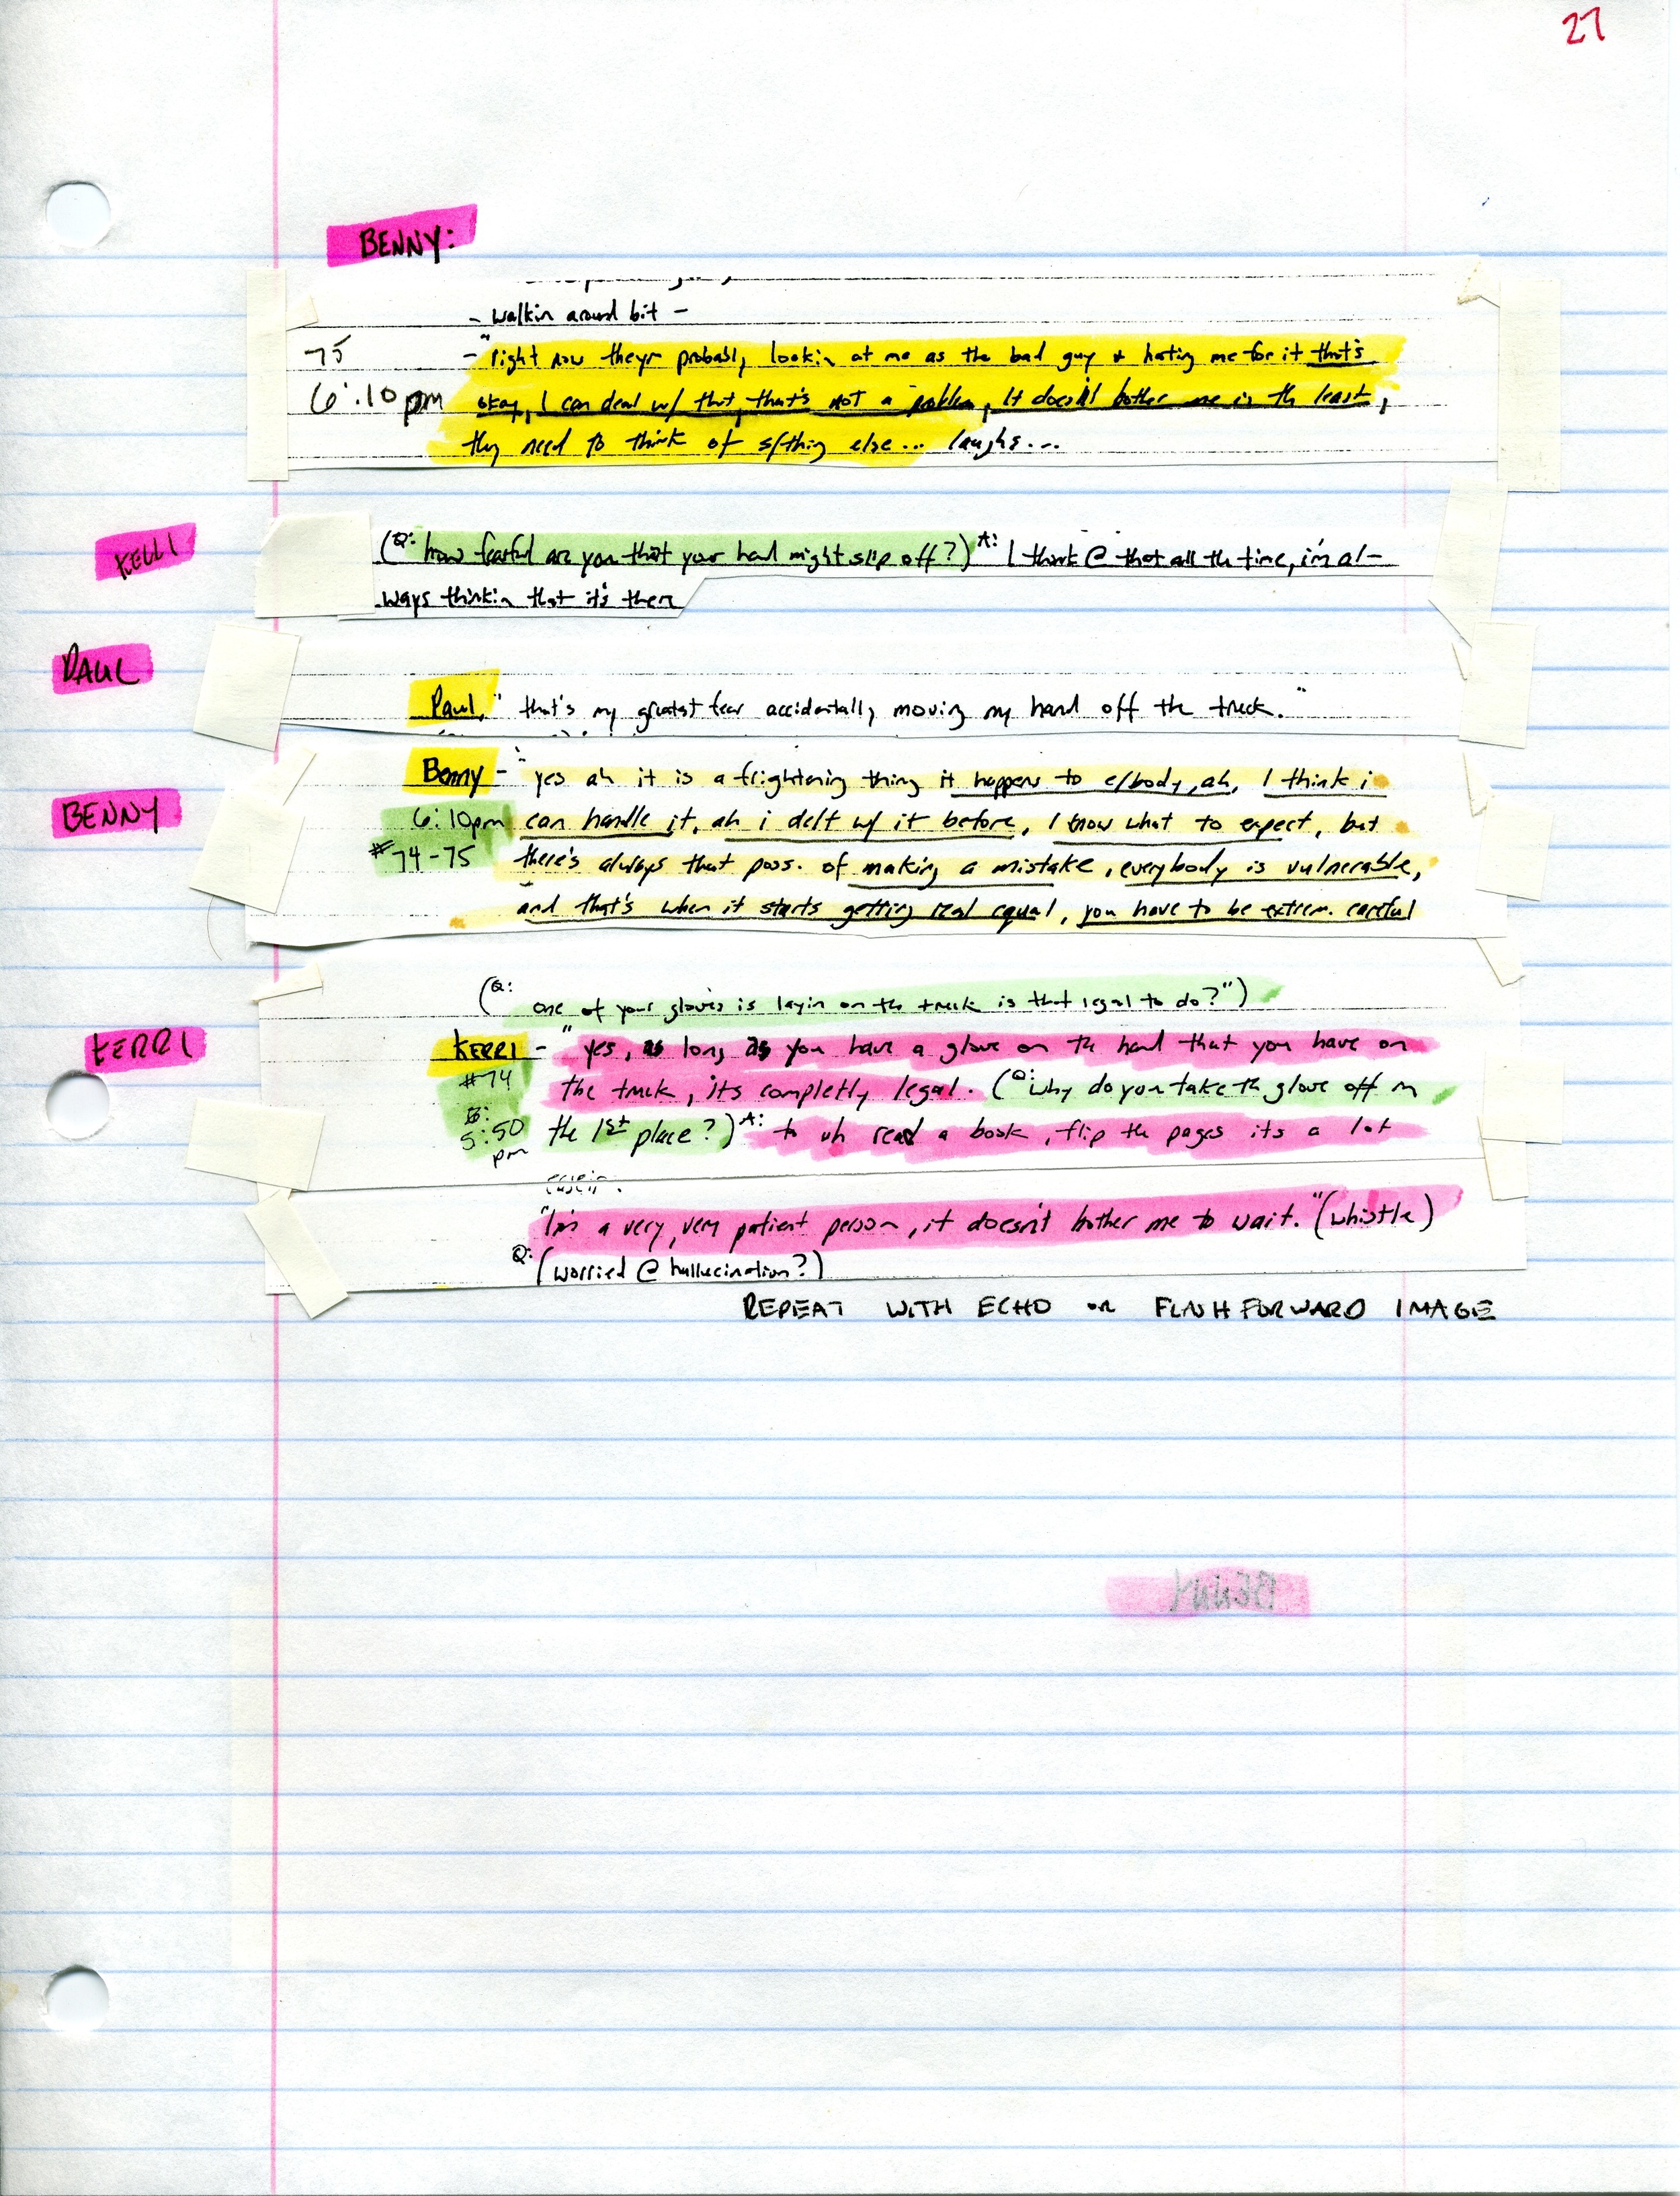 27
BENNY:
- walkin around bit -
75 - "right now theyr probably lookin at me as the bad guy & hating me for it that's
6:10 pm okay, I can deal w/ that, that's not a problem, it doesn't bother me in th least,
they need to think of s/thing else... laughs...
KELLI (Q: how fearful are you that your hand might slip off?) A: I think @ that all the time, i'm al-
ways thinkin that it's there
PAUL
Paul, "that's my greatest fear accidentally moving my hand off the truck."
Benny - "yes ah it is a frightening thing it happens to e/body, ah, I think i
BENNY 6:10pm can handle it, ah i delt w/ it before, I know what to expect, but
#74-75 there's always that poss. of making a mistake, everybody is vulnerable,
and that's when it starts getting real equal, you have to be extrem. careful
(Q: one of your gloves is layin on the truck is that legal to do?")
KERRI KERRI - "yes, as long as you have a glove on th hand that you have on
#74 the truck, its completly legal. (Q: why do you take th glove off in
5:50 pm the 1st place?) A: to uh read a book, flip the pages its a lot
easier.
"I'm a very, very patient person, it doesn't bother me to wait." (whistle)
Q: (worried @ hallucination?)
REPEAT WITH ECHO or FLASH FORWARD IMAGE
BENNY